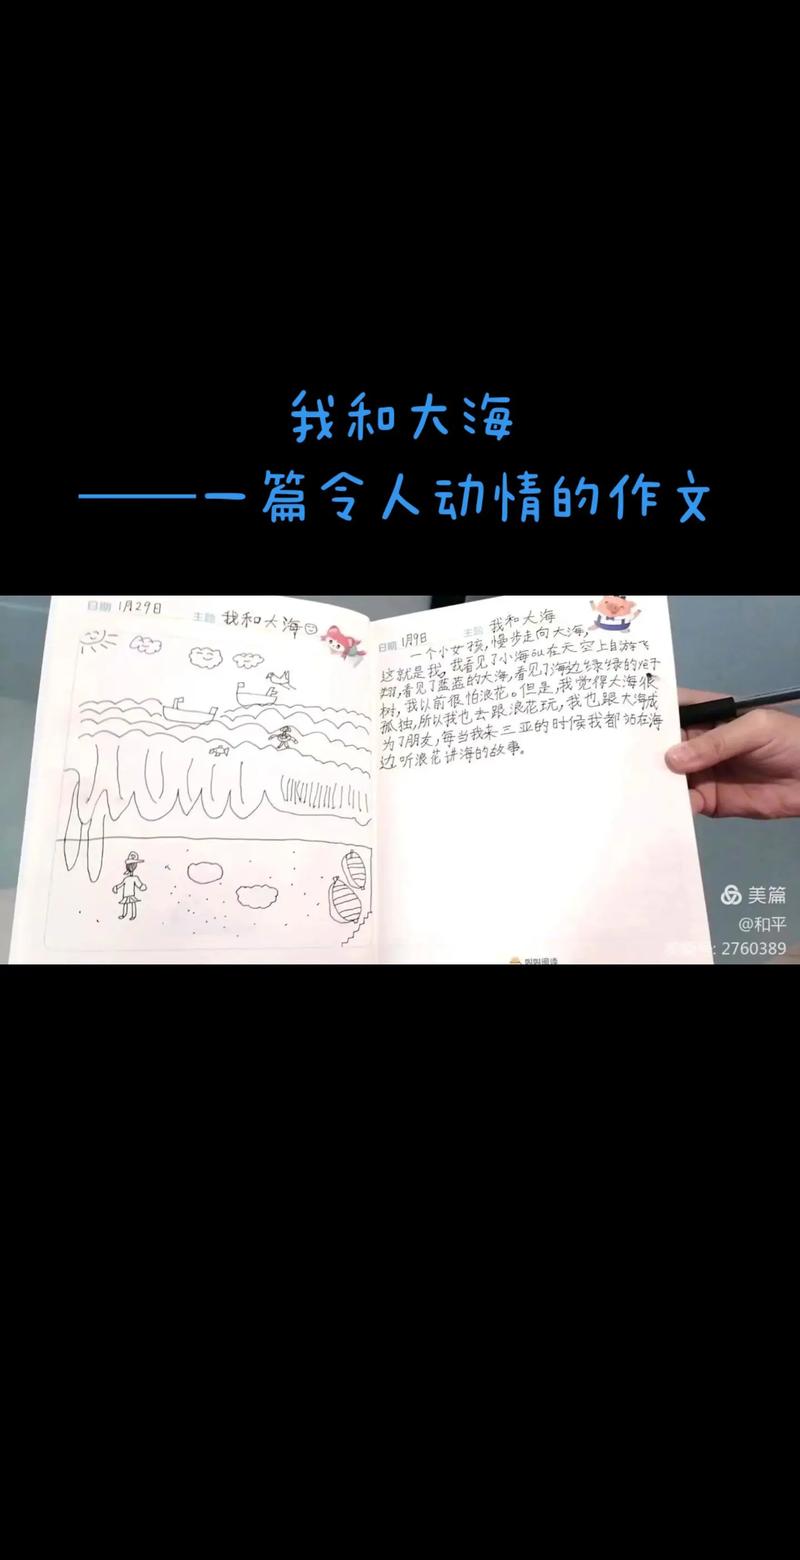 我和大海
——一篇令人动情的作文
日期 1月29日 主题 我和大海
日期 1月9日 主题 我和大海
一个小女孩,慢步走向大海,
这就是我,我看见了小海ou在天空上自游飞
翔,看见了蓝蓝的大海,看见了海边绿绿的椰子
树,我以前很怕浪花。但是,我觉得大海很
孤独,所以我也去跟浪花玩,我也跟大海成
为了朋友,每当我来三亚的时候我都站在海
边听浪花讲海的故事。
美篇
@和平
: 2760389